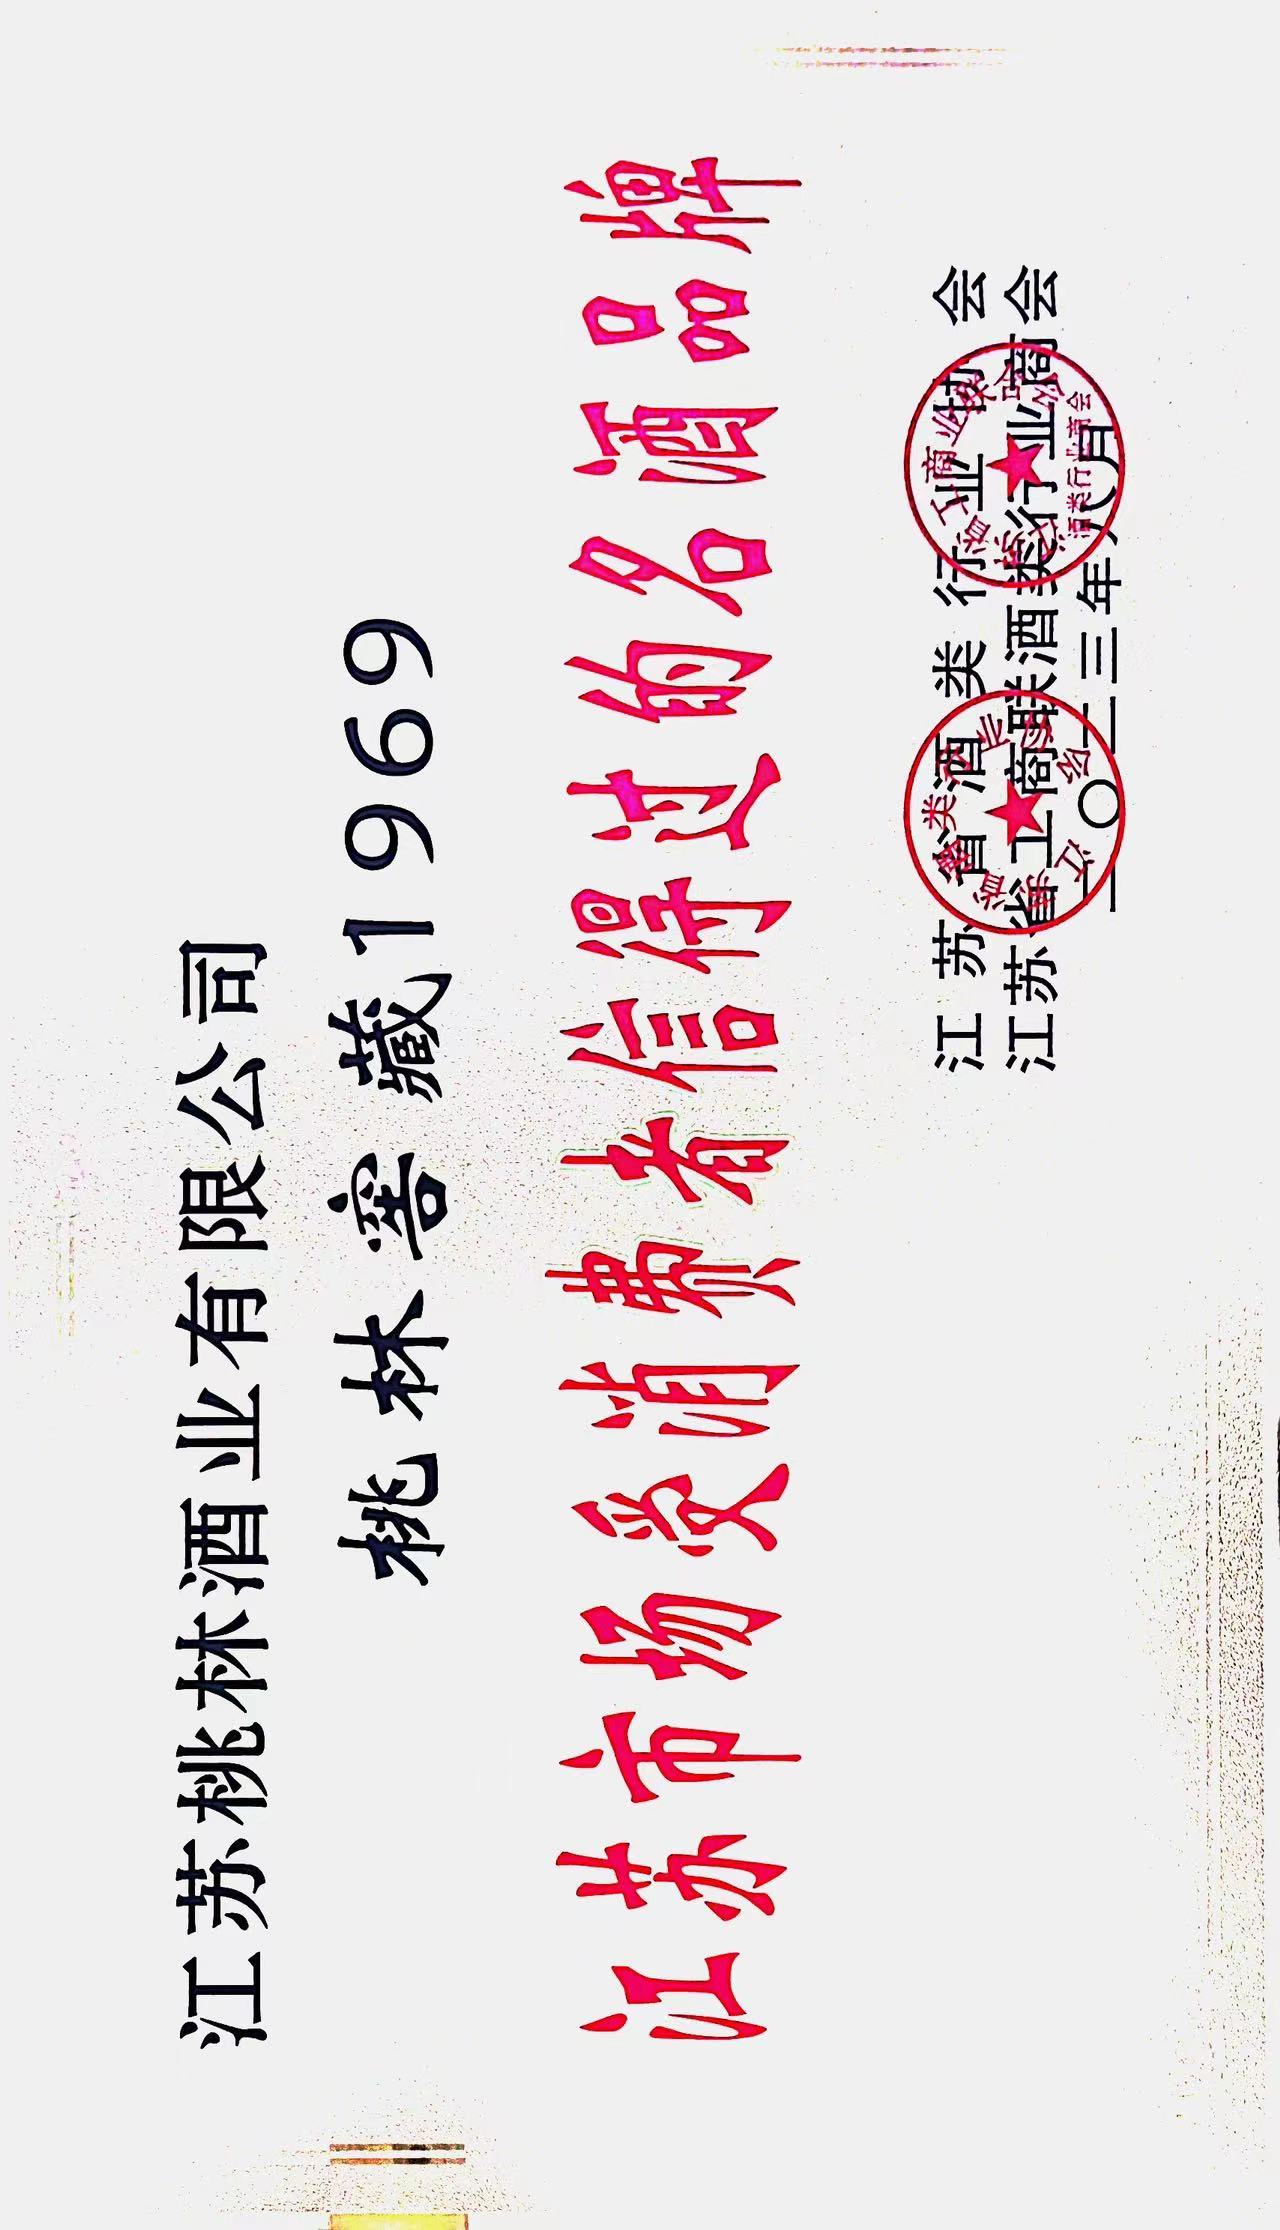 江苏桃林酒业有限公司
桃林窖藏1969
江苏市场受消费者信得过的名酒品牌
江苏省酒类行业协会
江苏省工商联酒类行业商会
二〇二三年八月
酒类行业商会